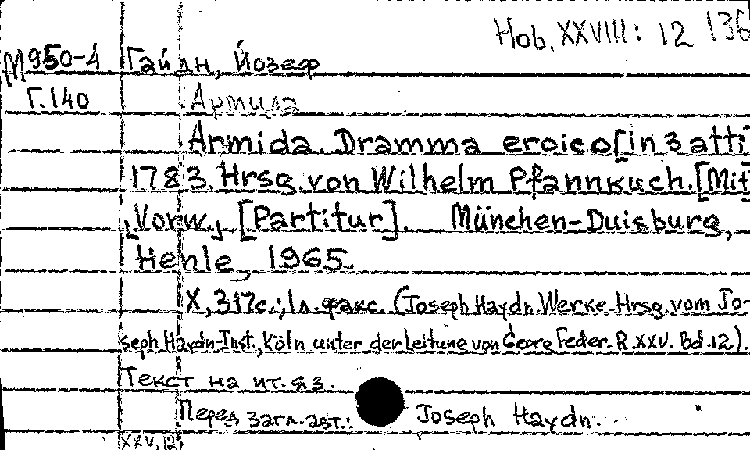 Hob. XXVIII: 12 136
М950-4 Гайдн, Йозеф
Г.140 Армида
Armida. Dramma eroico [in 3 atti
1783. Hrsg. von Wilhelm Pfannkuch. [Mit
Vorw., [Partitur]. München-Duisburg,
Henle, 1965.
X, 317с.; 1л. факс. (Joseph Haydn Werke. Hrsg. vom Jo-
seph Haydn-Inst., Köln unter der Leitung von Georg Feder. R. XXV. Bd. 12.).
Текст на ит. яз.
Перед загл. авт.: Joseph Haydn.
XXV, 12